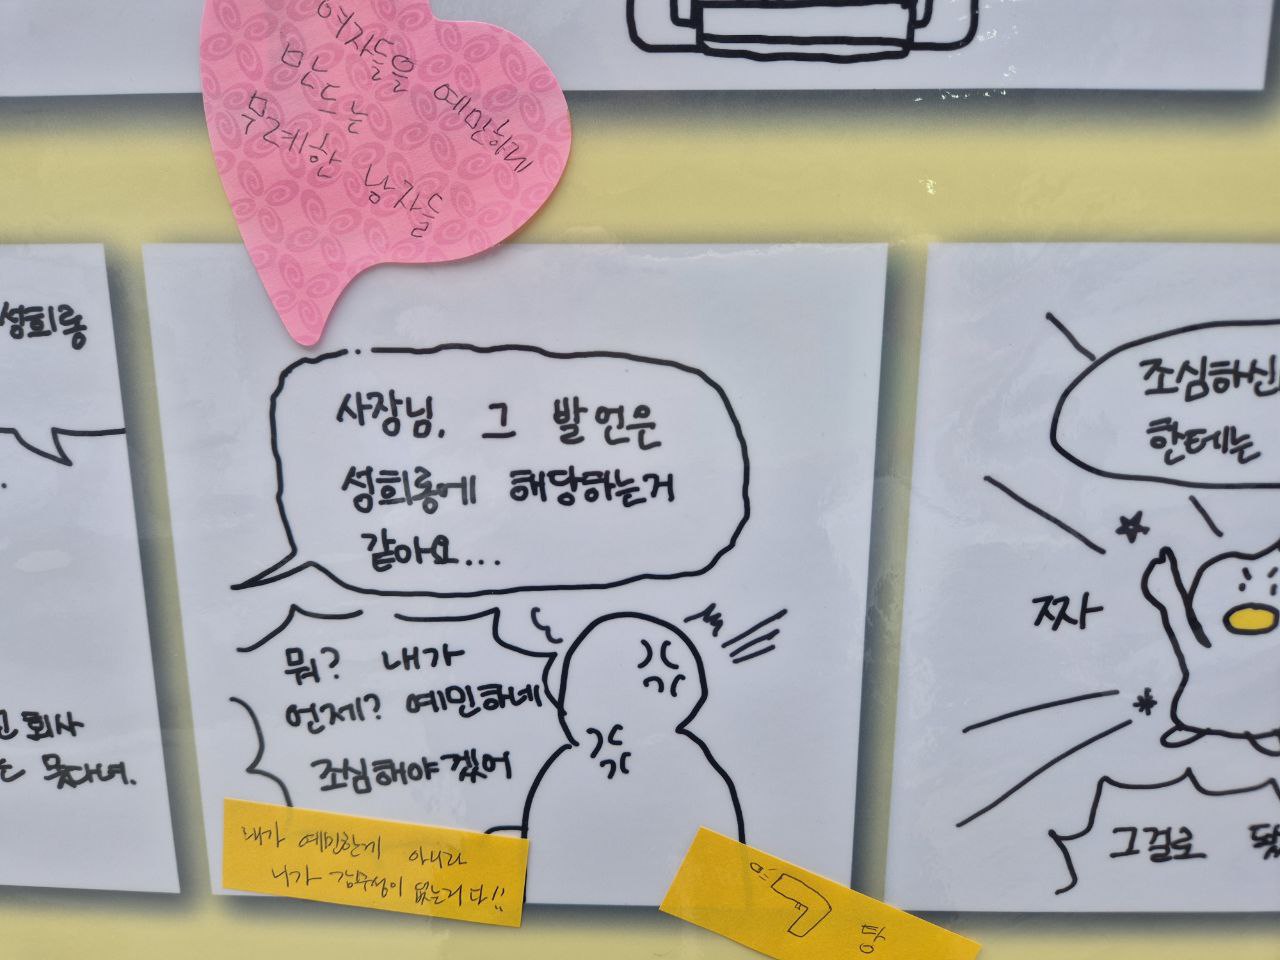 여자들을 예민하게
만드는
무례한 남자들
성희롱
회사
못다녀.
사장님, 그 발언은
성희롱에 해당하는거
같아요...
뭐? 내가
언제? 예민하네
조심해야겠어
내가 예민한게 아니라
니가 감수성이 없는거다!!
탕
조심하신
한테는
짜
그걸로